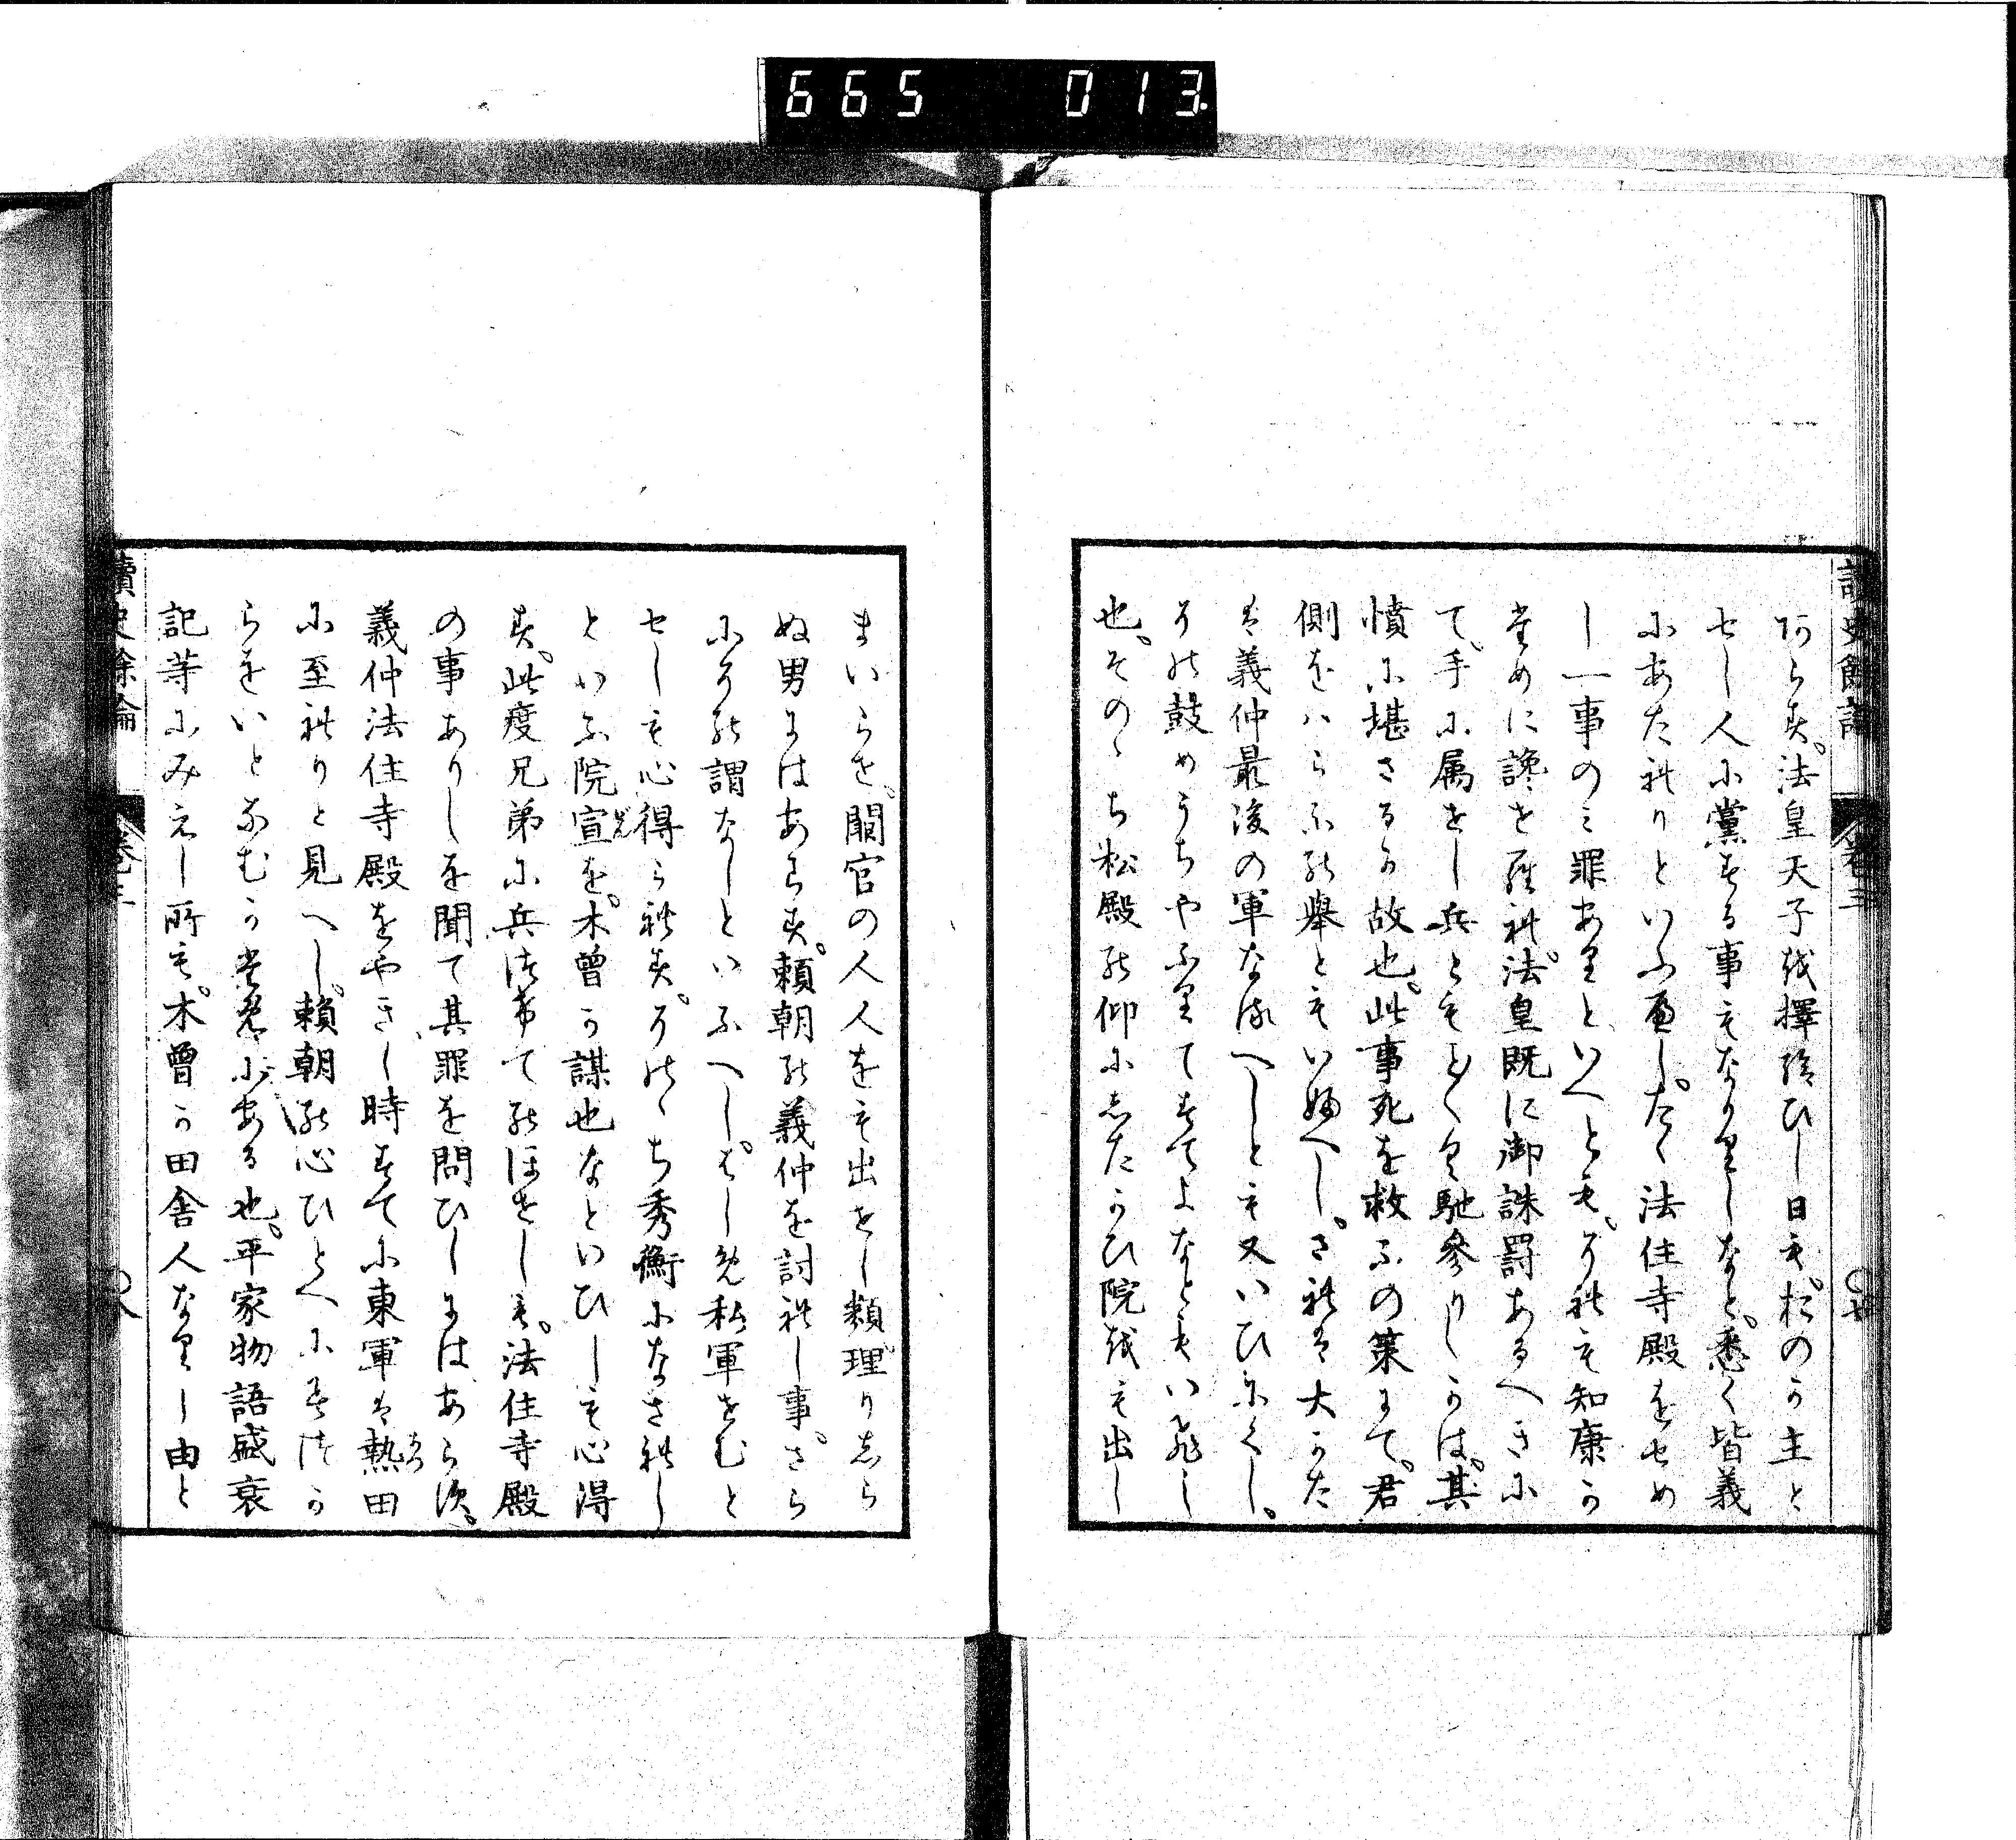 665 013.
讀史餘論 卷三
あらす。法皇天子を擇給ひし日も。おのか主と
せし人に黨する事もなかりしなと。悉く皆義
にあたれりといふへし。たゝ法住寺殿をせめ
し一事のミ罪ありといへとも。それも知康か
ために讒せられ。法皇既に御誅罰あるへきに
て、手に属せし兵ともことく〳〵馳參りしかは。其
憤に堪さるか故也。此事死を救ふの策にて。君
側をはらふの擧ともいふへし。されは大かた
は義仲最後の軍なるへしとも又いひにくし。
その鼓めうちやふりてすてよなともいひし
也。そのゝち松殿の仰にしたかひ院をも出し
まいらせ。闕官の人人をも出せし類理りしら
ぬ男にはあらす。頼朝の義仲を討れし事。さら
にその謂なしといふへし。はしめ私軍せむと
せしも心得られす。そのゝち秀衡になされし
といふ院宣を。木曾か謀也なといひしも心得
す。此度兄弟に兵つけてのほせしも。法住寺殿
の事ありしを聞て其罪を問ひしにはあらす。
義仲法住寺殿をやきし時すてに東軍は熱田
に至れりと見へし。頼朝の心ひとへにきつか
らをいとなむかためにある也。平家物語盛衰
記等にみえし所も。木曾か田舎人なりし由と
讀史餘論 卷三 〇八